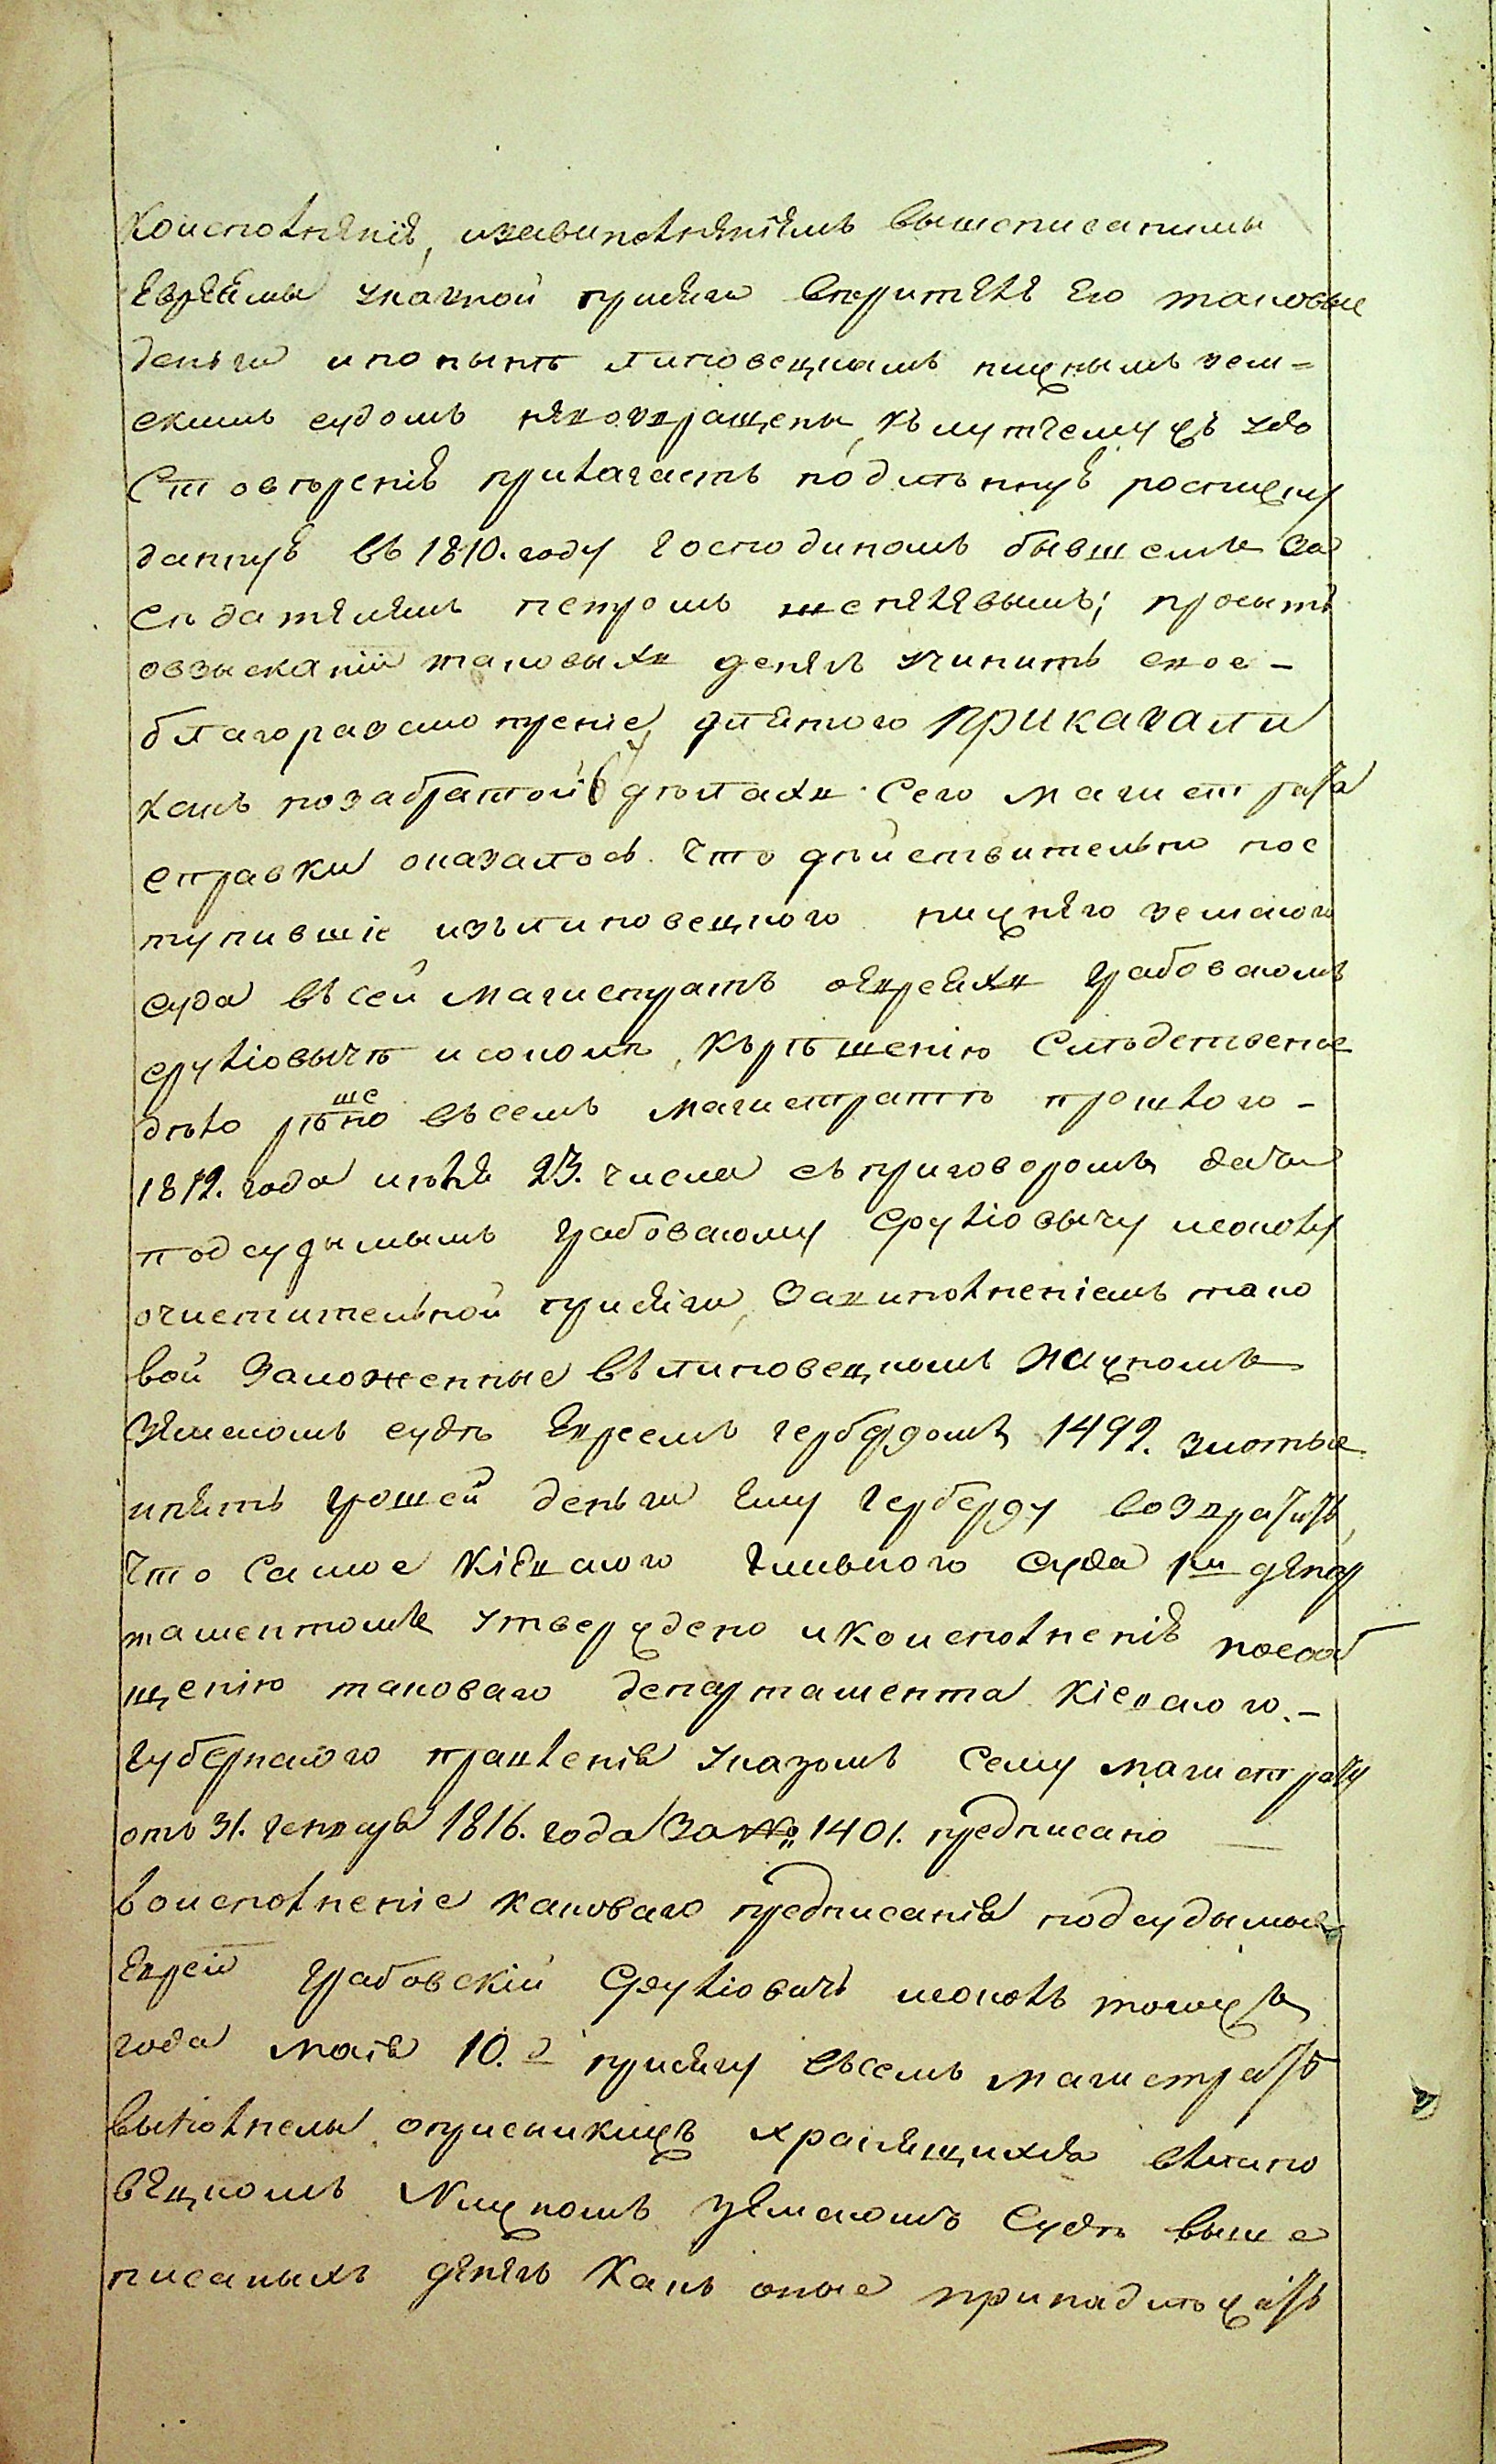 Коисполнѣнія, изавиполнѣніѣмъ вышеписаннимы
Евреями указной присяги вернителе Ею таковые
деньги ипонынѣ липовецкимъ нижнымъ зем-
скимъ судомъ невозвращены, Къ лутчемужъ удо
Стовѣренію прилагаетъ подлѣнную росписку
данную въ 1810. году Господиномъ бывшемъ За
сѣдателемъ петромъ шепелевымъ; просытъ
овзысканіи таковыхъ денегъ учинить свое-
благоразсмотреніе, длятого Приказали
какъ позабратой вдѣлахъ Сего магистрата
справки оказалось. Что дѣйствительно пос
тупившіе изълиповецкого нижнего земского
суда въсей Магистратъ оевреяхъ Грабовскомъ
Срулiовычѣ исополѣ, Кърѣшенію Слѣдственное
дѣло рѣшено въсемъ магистратѣ прошлого-
1812. года июля 23. числа съприговоромъ дачи
подсудымымъ Грабовскому Срулiовычу исополу
очистительной присяги, Завиполненіемъ тако
вой Заложенные вълиповецкомъ нижномъ
Земскомъ судѣ Евреемъ герберомъ 1492. злотые
ипять грошей деньги Ему Герберу возвратить,
Что Самое Кіевского Главного Суда 1м депар
таментомъ утверждено икоисполненію посооб
щенію таковаго департамента Кіевского.-
Губернского правленія указомъ Сему магистрату
отъ 31. генваря 1816. года За № 1401. предписано
воисполненіе каковаго предписанія подсудымые
Евреи Грабовскій Срулiовичъ исополъ тогожъ
года маія 10.го присягу въсемъ магистратѣ
выполнелы. оприсыкижъ хранящихся влипо
вецкомъ Нижномъ Земскомъ Судѣ выше
писаныхъ денегъ Какъ оные принадлѣжатъ